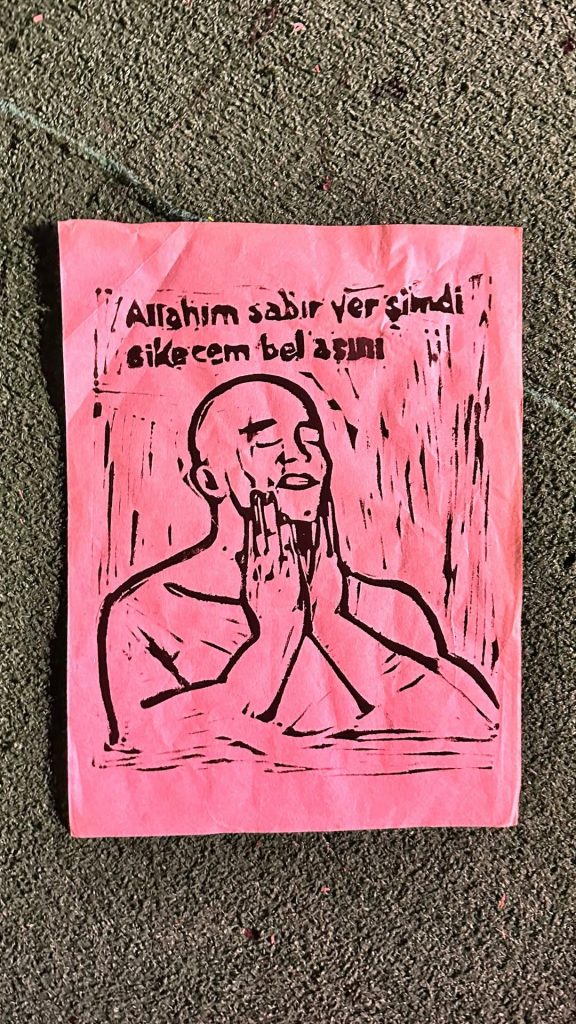 Allahım sabır ver şimdi
sikecem bel'asını